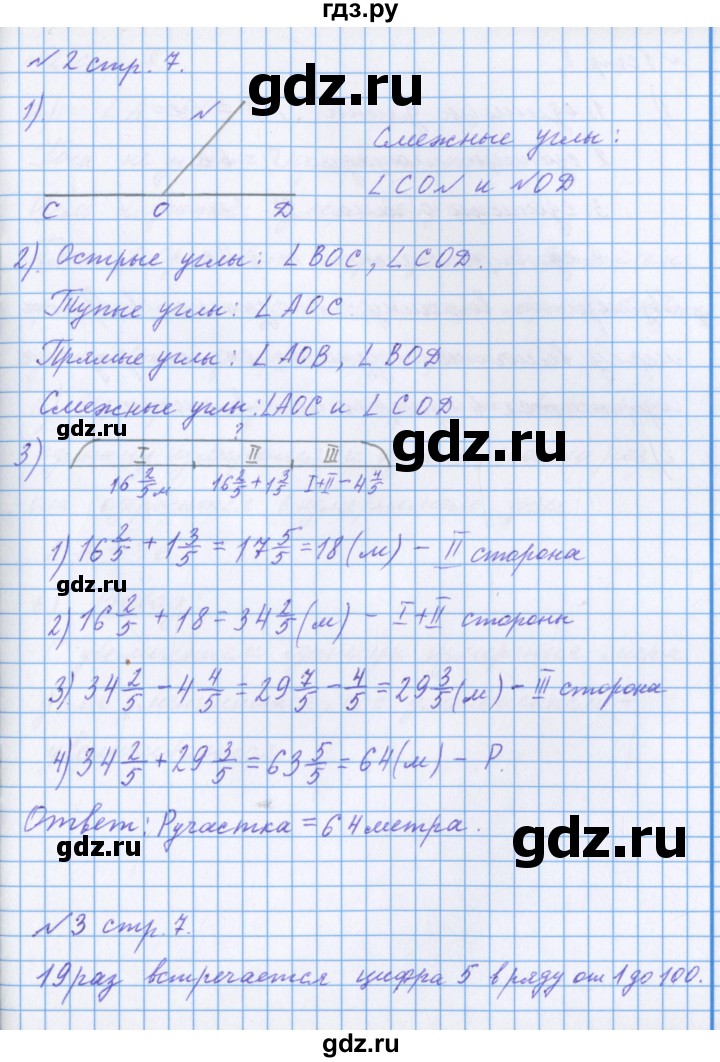 гдз.ру
№ 2 стр. 7.
gdz.ru
1).
N
Смежные углы:
∠CON и NOD
C O D
2). Острые углы: ∠BOC, ∠COD.
Тупые углы: ∠AOC.
Прямые углы: ∠AOB, ∠BOD
Смежные углы: ∠AOC и ∠COD
gdz.ru
gdz.ru
3)
?
I II III
16 2/5 м 16 2/5 + 1 3/5 I+II − 4 4/5
1) 16 2/5 + 1 3/5 = 17 5/5 = 18 (м) − II сторона
gdz.ru
2) 16 2/5 + 18 = 34 2/5 (м) − I+II стороны
3) 34 2/5 − 4 4/5 = 29 7/5 − 4/5 = 29 3/5 (м) − III сторона
4) 34 2/5 + 29 3/5 = 63 5/5 = 64 (м) − P.
Ответ: Pучастка = 64 метра.
gdz.ru
gdz.ru
№ 3 стр. 7.
19 раз встречается цифра 5 в ряду от 1 до 100.
gdz.ru